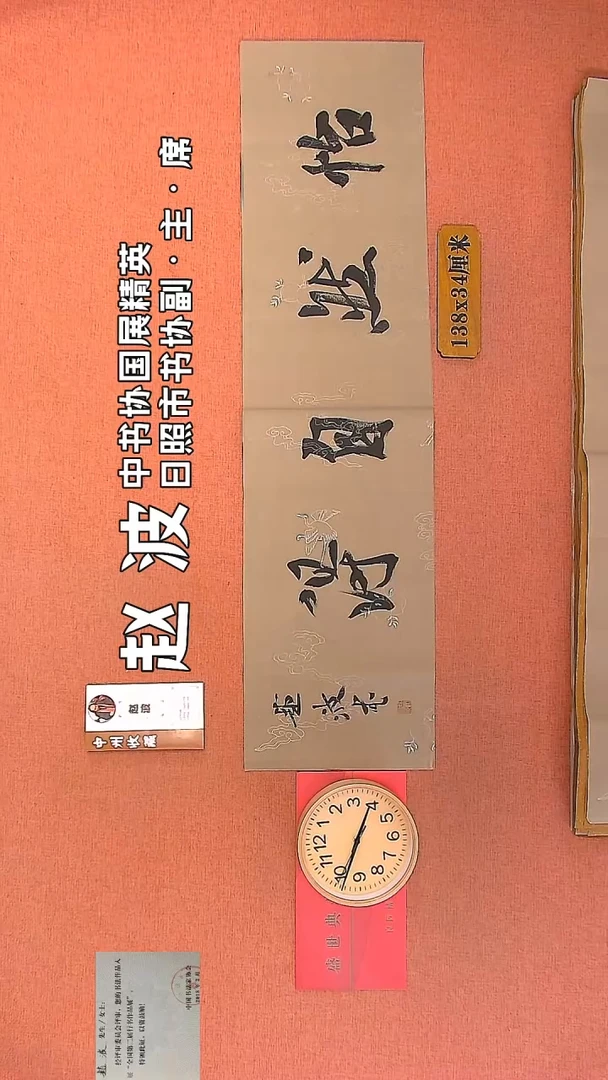 赵波
中书协国展精英
日照市书协副·主·席
怡然自得
赵波书
138x34厘米
赵波
中州收藏
12
1
2
3
4
5
6
7
8
9
10
11
盛世典
赵 波 先生/女士:
经评审委员会评审,您的书法作品入
展“全国第二届行书作品展”,
特颁此证,以资鼓励!
中国书法家协会